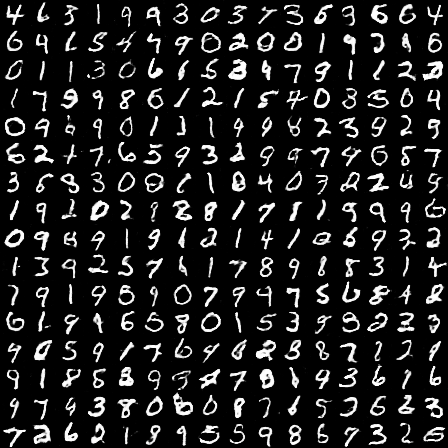 4 6 3 1 9 9 3 0 3 7 3 6 9 6 6 4
6 4 1 5 4 7 9 0 2 0 0 1 9 2 1 6
0 1 1 3 0 6 1 5 3 4 7 9 1 1 2 2
1 7 9 9 8 6 1 2 1 5 4 0 8 5 0 4
0 9 9 0 1 1 9 9 8 2 3 9 2 9
6 2 7 6 5 9 3 2 9 9 7 4 6 8 7
3 5 8 3 0 0 1 8 4 0 7 2 2 4 5
1 9 2 0 2 9 2 8 1 7 8 1 9 9 9 6
0 9 8 9 1 9 1 2 1 4 1 2 6 9 3 2
1 3 9 2 5 7 1 1 7 8 9 8 8 3 1 4
7 9 1 9 8 9 0 7 9 9 7 5 6 8 4 8
6 1 9 1 6 5 8 0 1 5 3 9 9 2 3 3
9 0 5 9 1 7 6 4 8 2 3 8 7 1 2 9
9 1 8 8 8 9 3 7 0 1 4 3 6 9 6
9 7 9 3 8 0 6 0 8 7 6 5 2 6 2 3
7 2 6 2 1 8 9 5 5 9 8 6 7 3 2